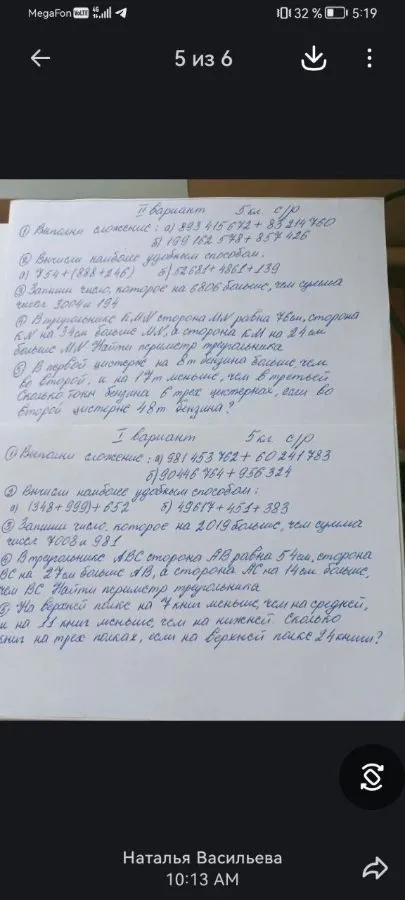 MegaFon VoLTE 4G 32 % 5:19
5 из 6
II вариант 5 кл. с/р
① Выполни сложение: а) 893 415 672 + 83 214 760
б) 199 162 578 + 857 426
② Вычисли наиболее удобным способом:
а) 754 + (888 + 246) б) 52681 + 4861 + 139
③ Запиши число, которое на 6806 больше, чем сумма
чисел 3004 и 194
④ В треугольнике KMN сторона MN равна 76 см, сторона
KN на 34 см больше MN, а сторона KM на 24 см
больше MN. Найти периметр треугольника
⑤ В первой цистерне на 8 т бензина больше, чем
во второй, и на 17 т меньше, чем в третьей
Сколько тонн бензина в трех цистернах, если во
второй цистерне 48 т бензина?
I вариант 5 кл с/р
① Выполни сложение: а) 981 453 762 + 60 241 783
б) 90446 764 + 956 324
② Вычисли наиболее удобным способом:
а) (348 + 999) + 652 б) 49617 + 451 + 383
③ Запиши число, которое на 2019 больше, чем сумма
чисел 7008 и 981
④ В треугольнике ABC сторона AB равна 54 см, сторона
BC на 27 см больше AB, а сторона AC на 14 см больше,
чем BC. Найти периметр треугольника
⑤ На верхней полке на 7 книг меньше, чем на средней,
и на 11 книг меньше, чем на нижней. Сколько
книг на трех полках, если на верхней полке 24 книги?
Наталья Васильева
10:13 AM